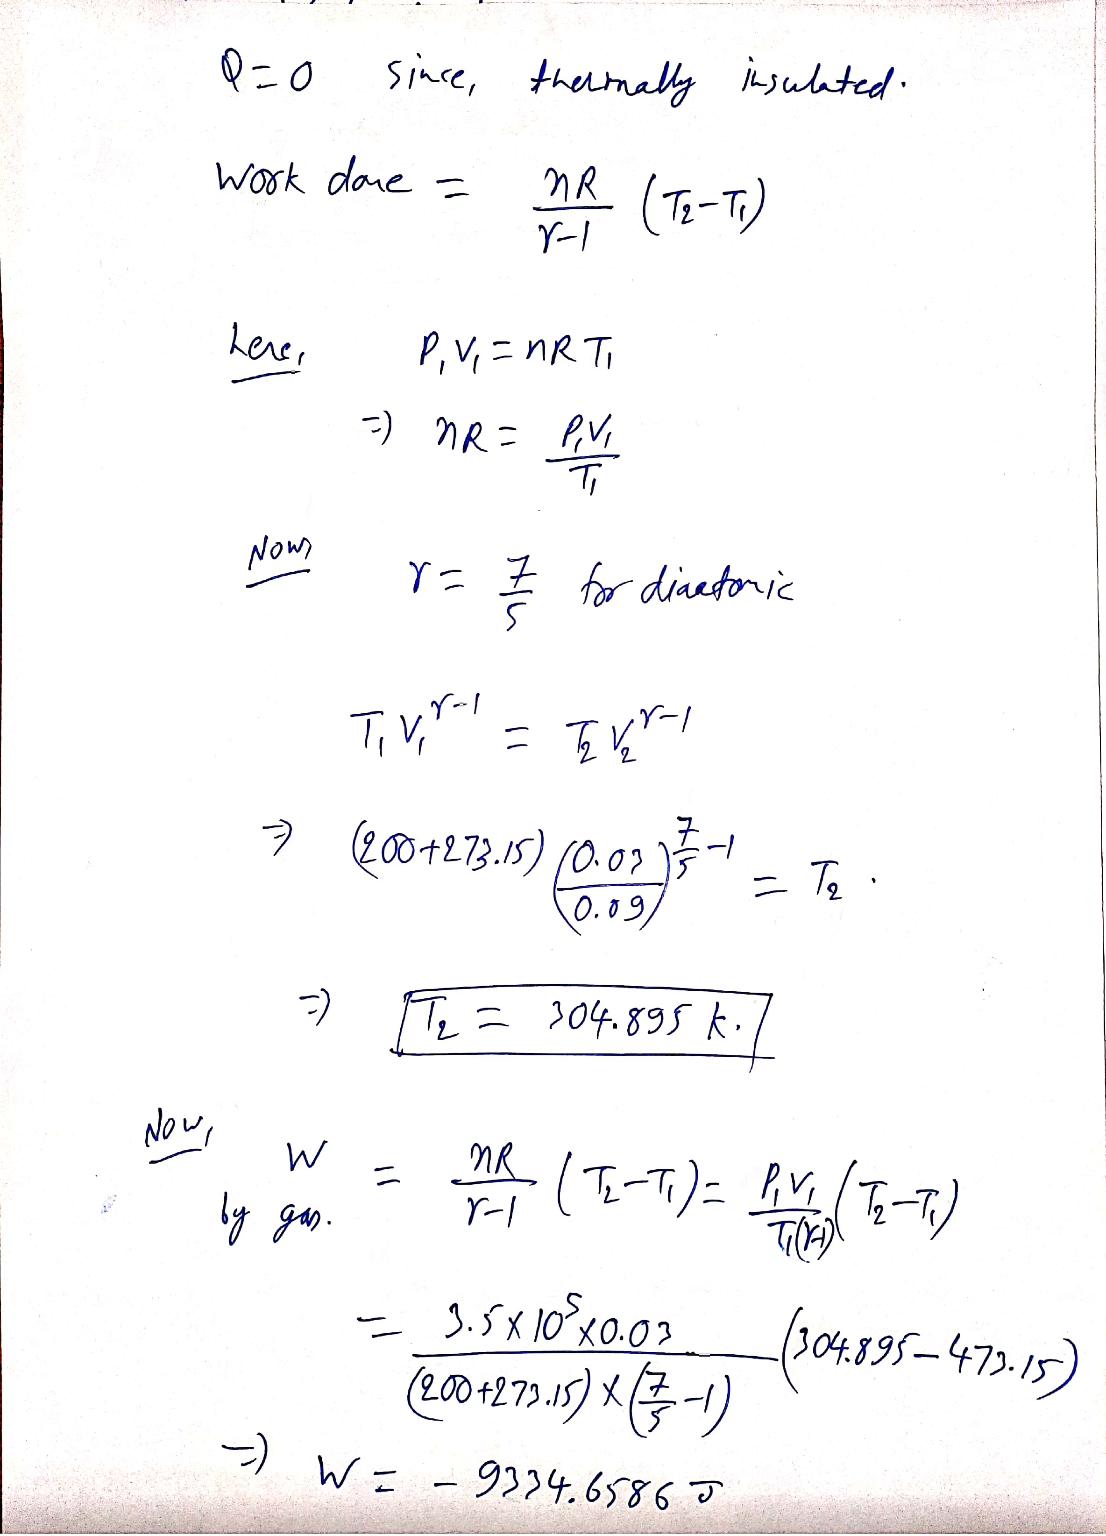 Q=0 since, thermally insulated.
Work done = nR/γ-1 (T₂-T₁)
here, P₁V₁ = nRT₁
=) nR = P₁V₁/T₁
Now, γ = 7/5 for diaatomic
T₁V₁^γ-1 = T₂V₂^γ-1
=) (200+273.15) (0.03/0.09)^7/5-1 = T₂.
=) T₂ = 304.895 k.
Now, W by gas. = nR/γ-1 (T₂-T₁) = P₁V₁/T₁(γ-1) (T₂-T₁)
= 3.5×10⁵×0.03/(200+273.15)×(7/5-1) (304.895-473.15)
=) W = -9334.6586 J